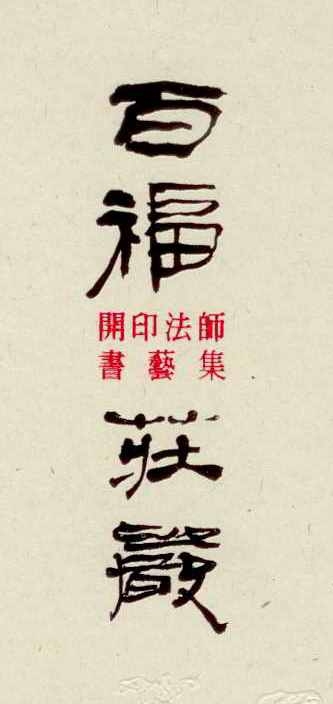 百福
開印法師
書藝集
莊嚴